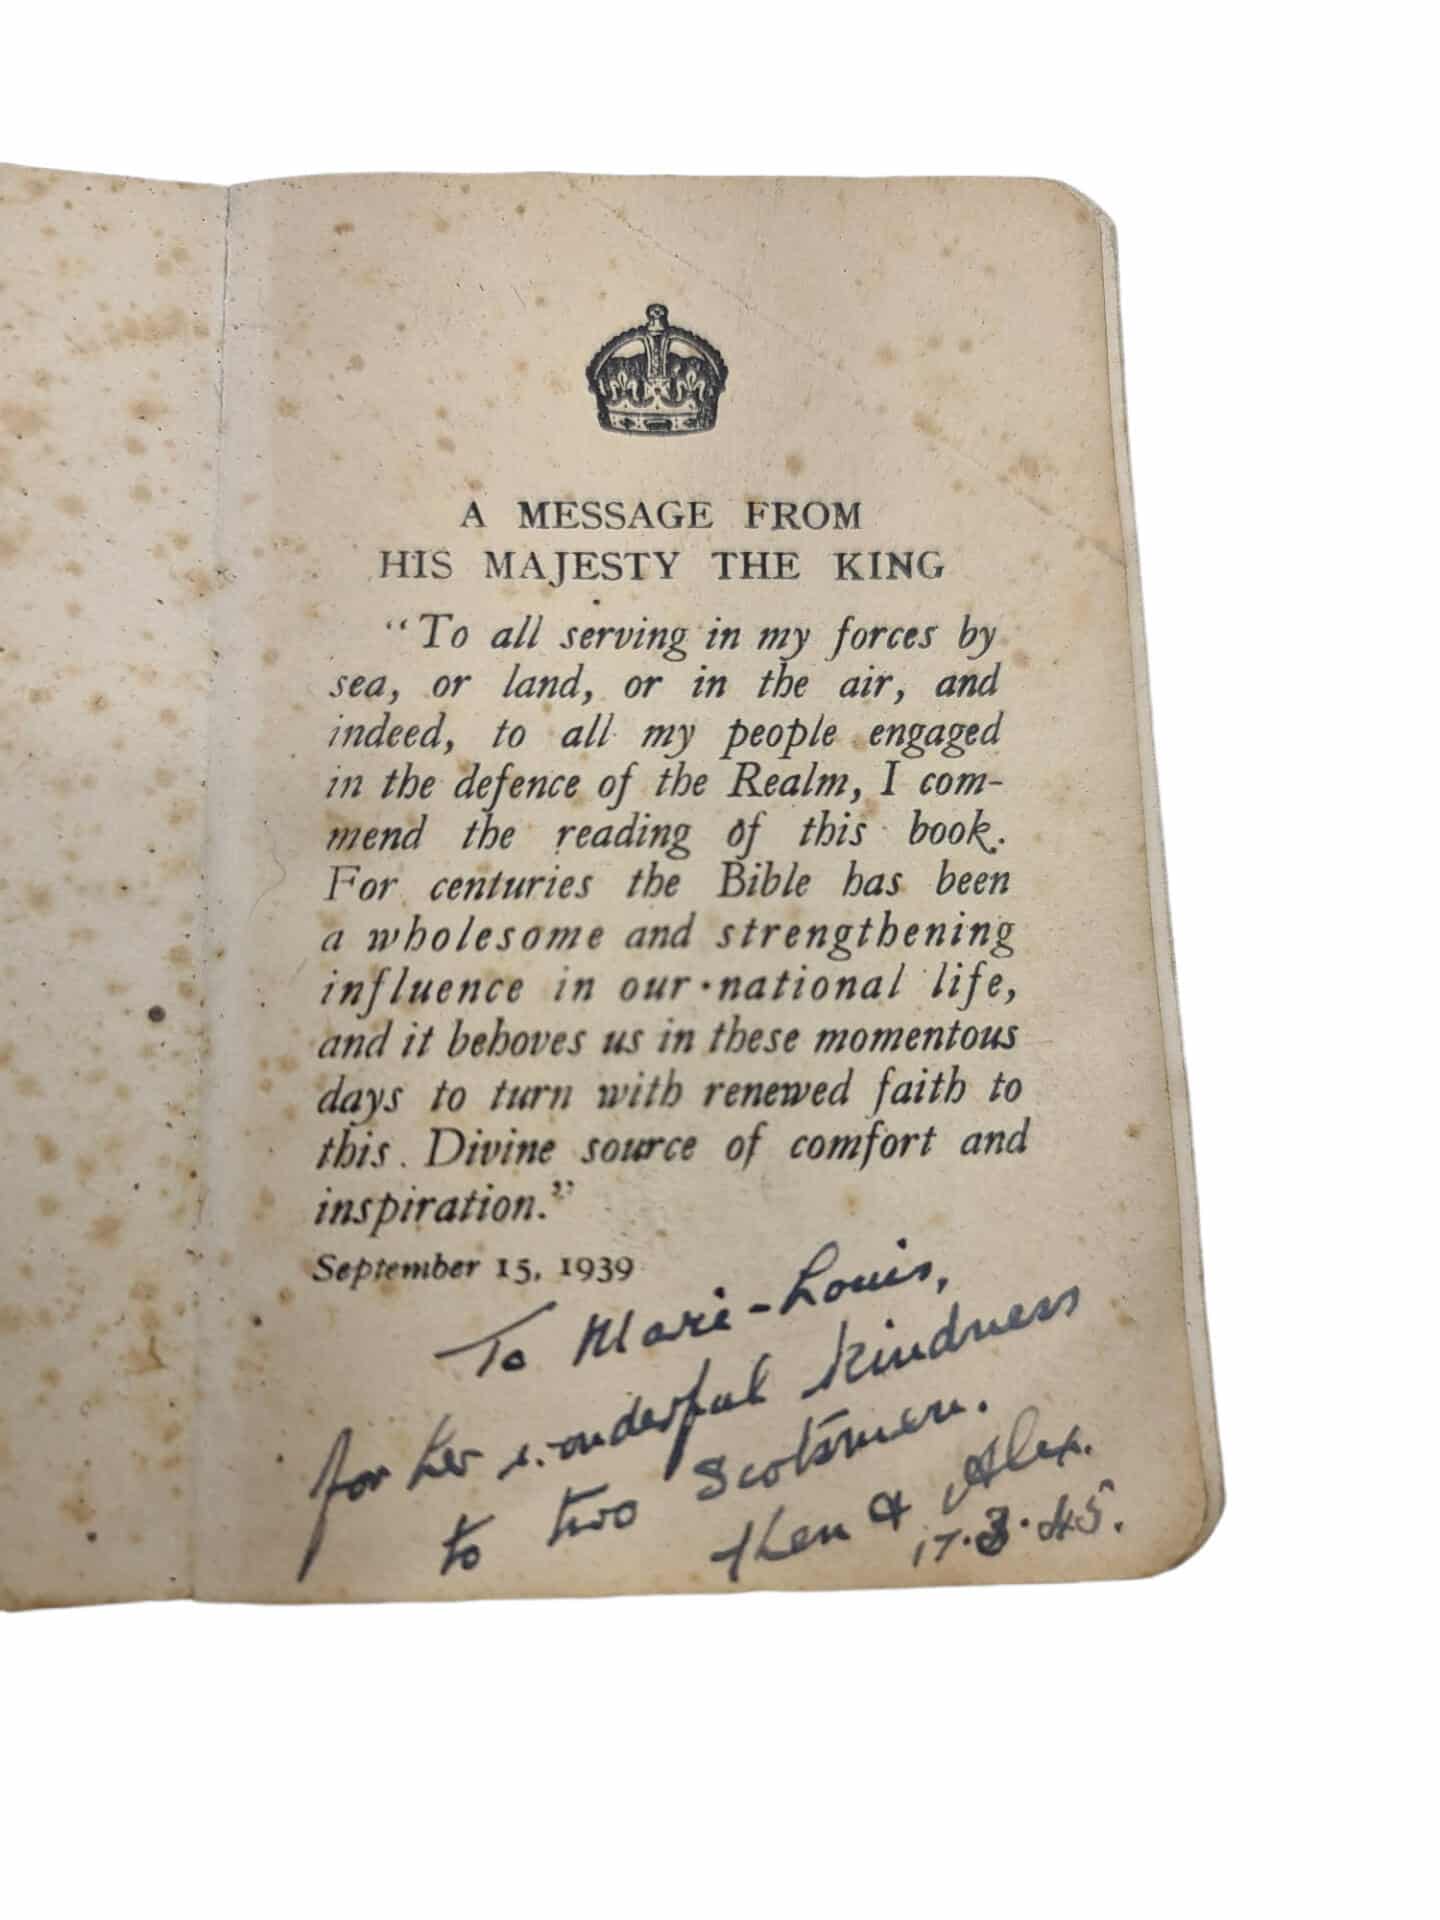 A MESSAGE FROM
HIS MAJESTY THE KING
"To all serving in my forces by
sea, or land, or in the air, and
indeed, to all my people engaged
in the defence of the Realm, I com-
mend the reading of this book.
For centuries the Bible has been
a wholesome and strengthening
influence in our national life,
and it behoves us in these momentous
days to turn with renewed faith to
this Divine source of comfort and
inspiration."
September 15, 1939
To Marie-Louis,
for her wonderful kindness
to two Scotsmen.
Ken & Alex.
17.3.45.